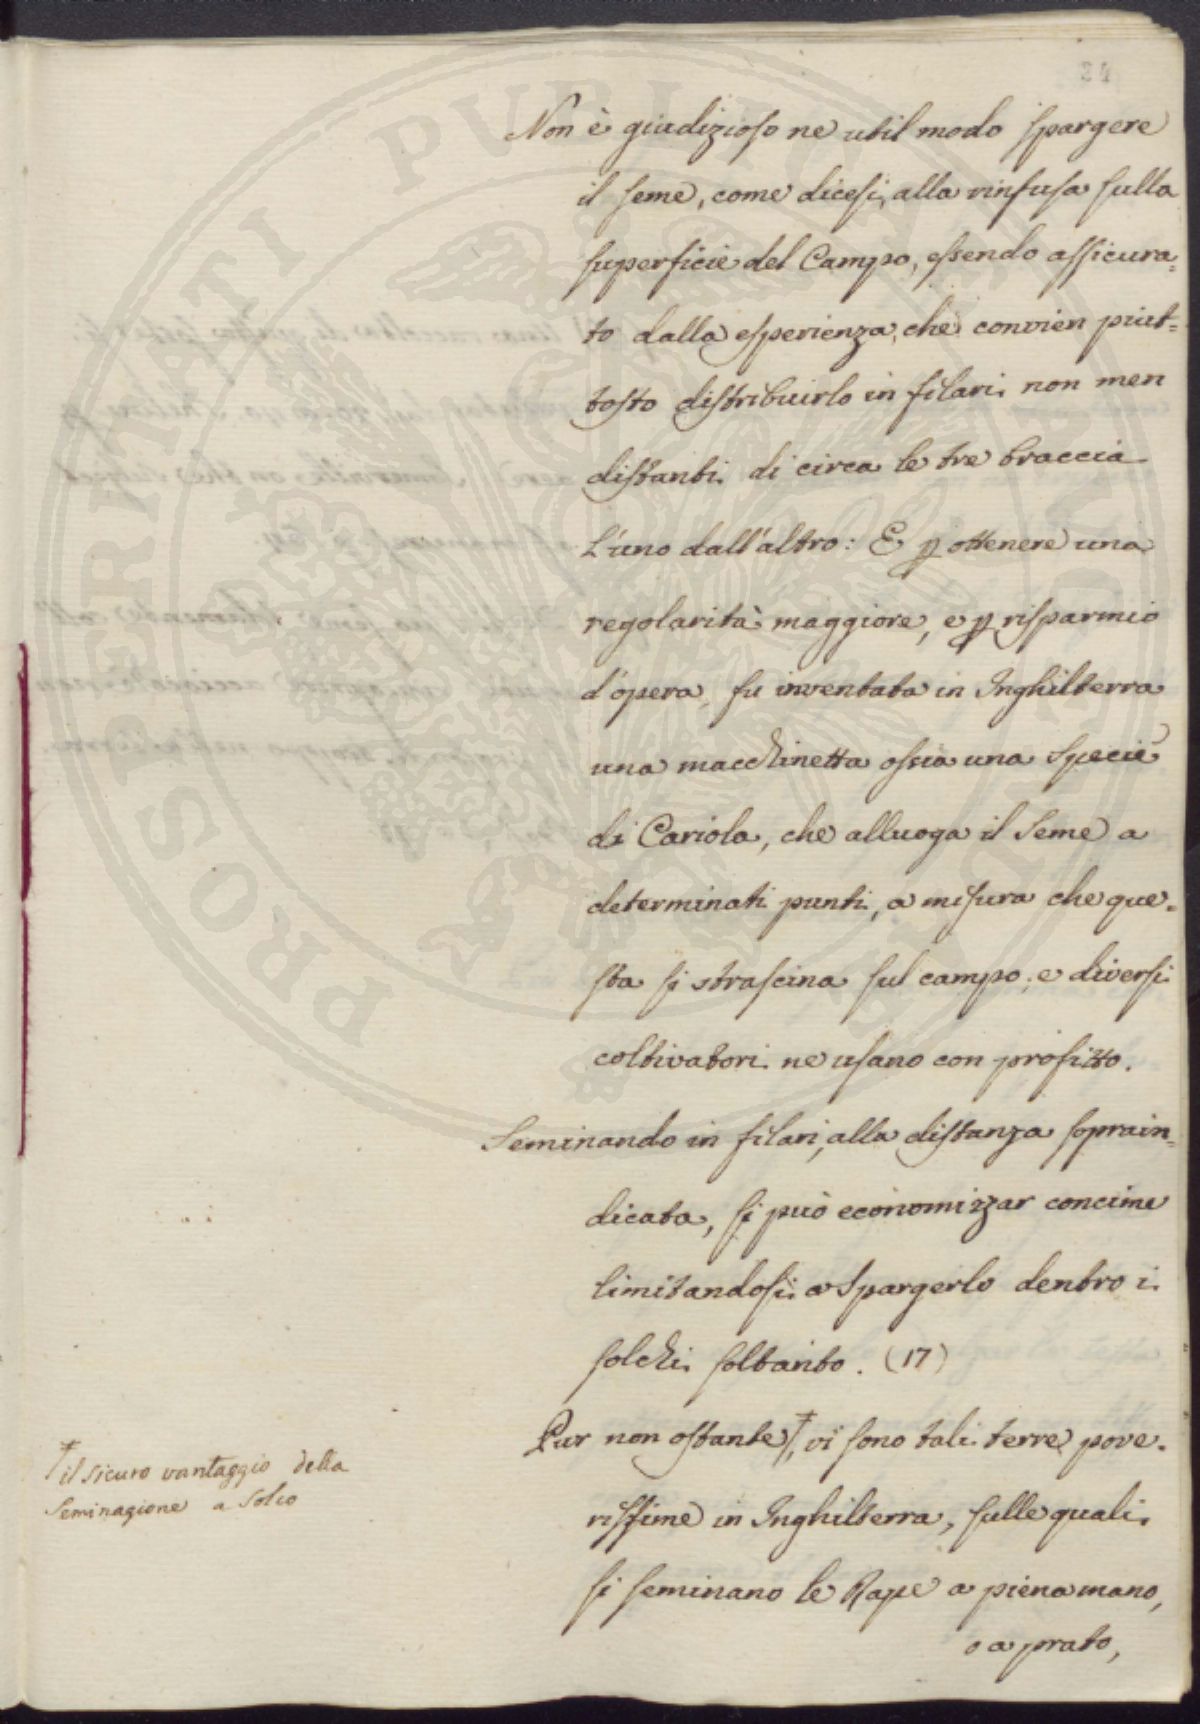 34
Non è giudizioso ne util modo spargere
il seme, come dicesi, alla rinfusa sulla
superficie del Campo, essendo assicura=
to dalla esperienza, che convien piut=
tosto distribuirlo in filari non men
distanti di circa le tre braccia
L'uno dall'altro: E p ottenere una
regolarità maggiore, e p risparmio
d'opera, fu inventata in Inghilterra
una macchinetta ossia una Specie
di Cariola, che alluoga il Seme a
determinati punti, a misura che que=
sta si strascina sul campo; e diversi
coltivatori ne usano con profitto.
Seminando in filari, alla distanza soprain=
dicata, si può economizzar concime
limitandosi a Spargerlo dentro i
solchi soltanto. (17)
Pur non ostante †, vi sono tali terre pove=
rissime in Inghilterra, sulle quali
si seminano le Rape a piena mano,
o a prato,
† il sicuro vantaggio della
Seminagione a Solco
PROSPERITATI PUBLICAE AUGENDAE